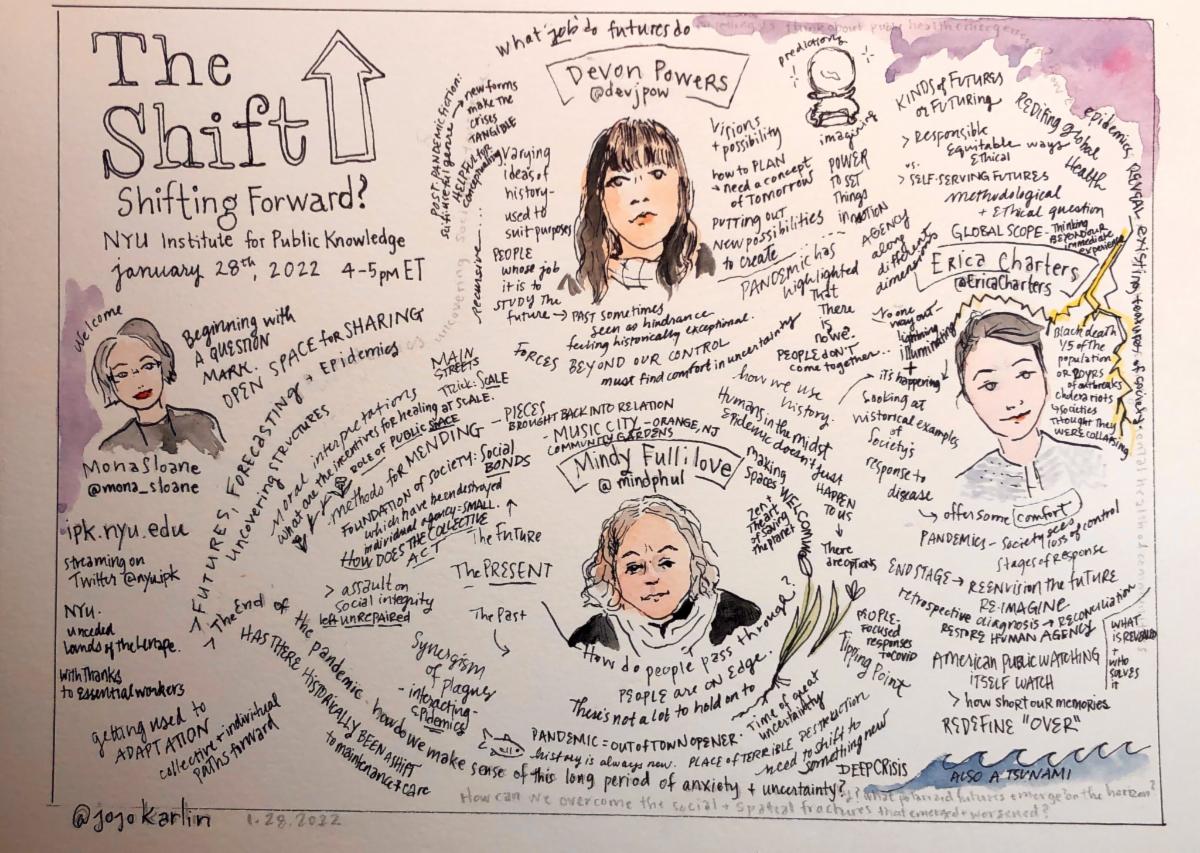 The
Shift
Shifting Forward?
NYU Institute for Public Knowledge
january 28th, 2022 4-5pm ET
Welcome
Beginning with
A QUESTION
MARK.
OPEN SPACE for SHARING
Mona Sloane
@mona_sloane
ipk.nyu.edu
streaming on
Twitch @nyuipk
NYU.
unceded
Lands of the Lenape.
with Thanks
to Essential workers
getting used to
ADAPTATION
collective + individual
paths forward
@jojokarlin 1.28.2022
what 'job' do futures do
Devon Powers
@devjpow
POST-PANDEMIC fiction:
HELPFUL FOR
conceptualizing
new forms
make the
crises
TANGIBLE
recursive....
Varying
ideas of
history-
used to
suit purposes
PEOPLE
whose job
it is to
STUDY the
future → PAST sometimes
seen as hindrance
feeling historically exceptional.
FORCES BEYOND OUR CONTROL
must find comfort in uncertainty
Visions
+ possibility
how to PLAN
need a concept
of Tomorrow
PUTTING OUT
NEW possibilities
to create
predictions
imagining
POWER
TO SET
Things
in MOTION
AGENCY
along
different
dimensions
PANDEMIC has
highlighted
That
There
is no
we.
PEOPLE DON'T
come together...
KINDS of FUTURES
or FUTURING
> Responsible
Equitable ways
Ethical
vs.
> SELF-SERVING FUTURES
methodological
+ Ethical question
GLOBAL SCOPE - Thinking
BEYOND OUR
immediate
experience
REDIFing global
Health
Erica Charters
@EricaCharters
no one
way out-
lightning
illuminating
+
it's happening
Looking at
historical examples
of
Society's
response to
disease
Black death
1/5 of the
population
or 20 yrs
of outbreaks
cholera riots
↳ societies
Thought They
WERE collapsing
→ offer some comfort
PANDEMICS - Society sees
loss of control
stages of response
END STAGE → REENVISION the FUTURE
RE-IMAGINE
retrospective diagnosis → RECONCILIATION
RESTORE HUMAN AGENCY
WHAT
IS REVEALED
+
WHO
SOLVES
IT
AMERICAN PUBLIC WATCHING
ITSELF WATCH
> how short our memories
REDEFINE "OVER"
ALSO A TSUNAMI
> FUTURES, FORECASTING + Epidemics
uncovering STRUCTURES
moral interpretations
what are the incentives for healing at SCALE.
ROLE OF PUBLIC SPACE
MAIN
STREETS
Trick: SCALE
methods for MENDING - PIECES
BROUGHT BACK INTO RELATION
- MUSIC CITY - ORANGE, NJ
COMMUNITY GARDENS
FOUNDATION of society: Social
BONDS
which have been destroyed
individual agency = SMALL.
HOW DOES THE COLLECTIVE
ACT
Mindy Fullilove
@mindphul
The Future
The PRESENT
The Past
> assault on
social integrity
left UNREPAIRED
Synergism
of plagues
- interacting-
epidemics
how we use
history.
Humans in the midst
Epidemic doesn't just
HAPPEN
TO US
↓
There
are options
making
spaces WELCOMING
Zen +
The art
of saving
the planet
How do people pass through?
PEOPLE are ON Edge.
There's not a lot to hold on to
PEOPLE-
FOCUSED
responses
to covid
Tipping Point
PANDEMIC = OUT OF TOWN OPENER.
Time of great
uncertainty
history is always new. PLACE OF TERRIBLE DESTRUCTION
need to shift to
something new
DEEP CRISIS
> The End of the pandemic - how do we make sense of this long period of anxiety + uncertainty?
HAS THERE HISTORICALLY BEEN A SHIFT
to maintenance + care
How can we overcome the social + spatial fractures that emerged + worsened?
? What polarized futures emerge on the horizon?